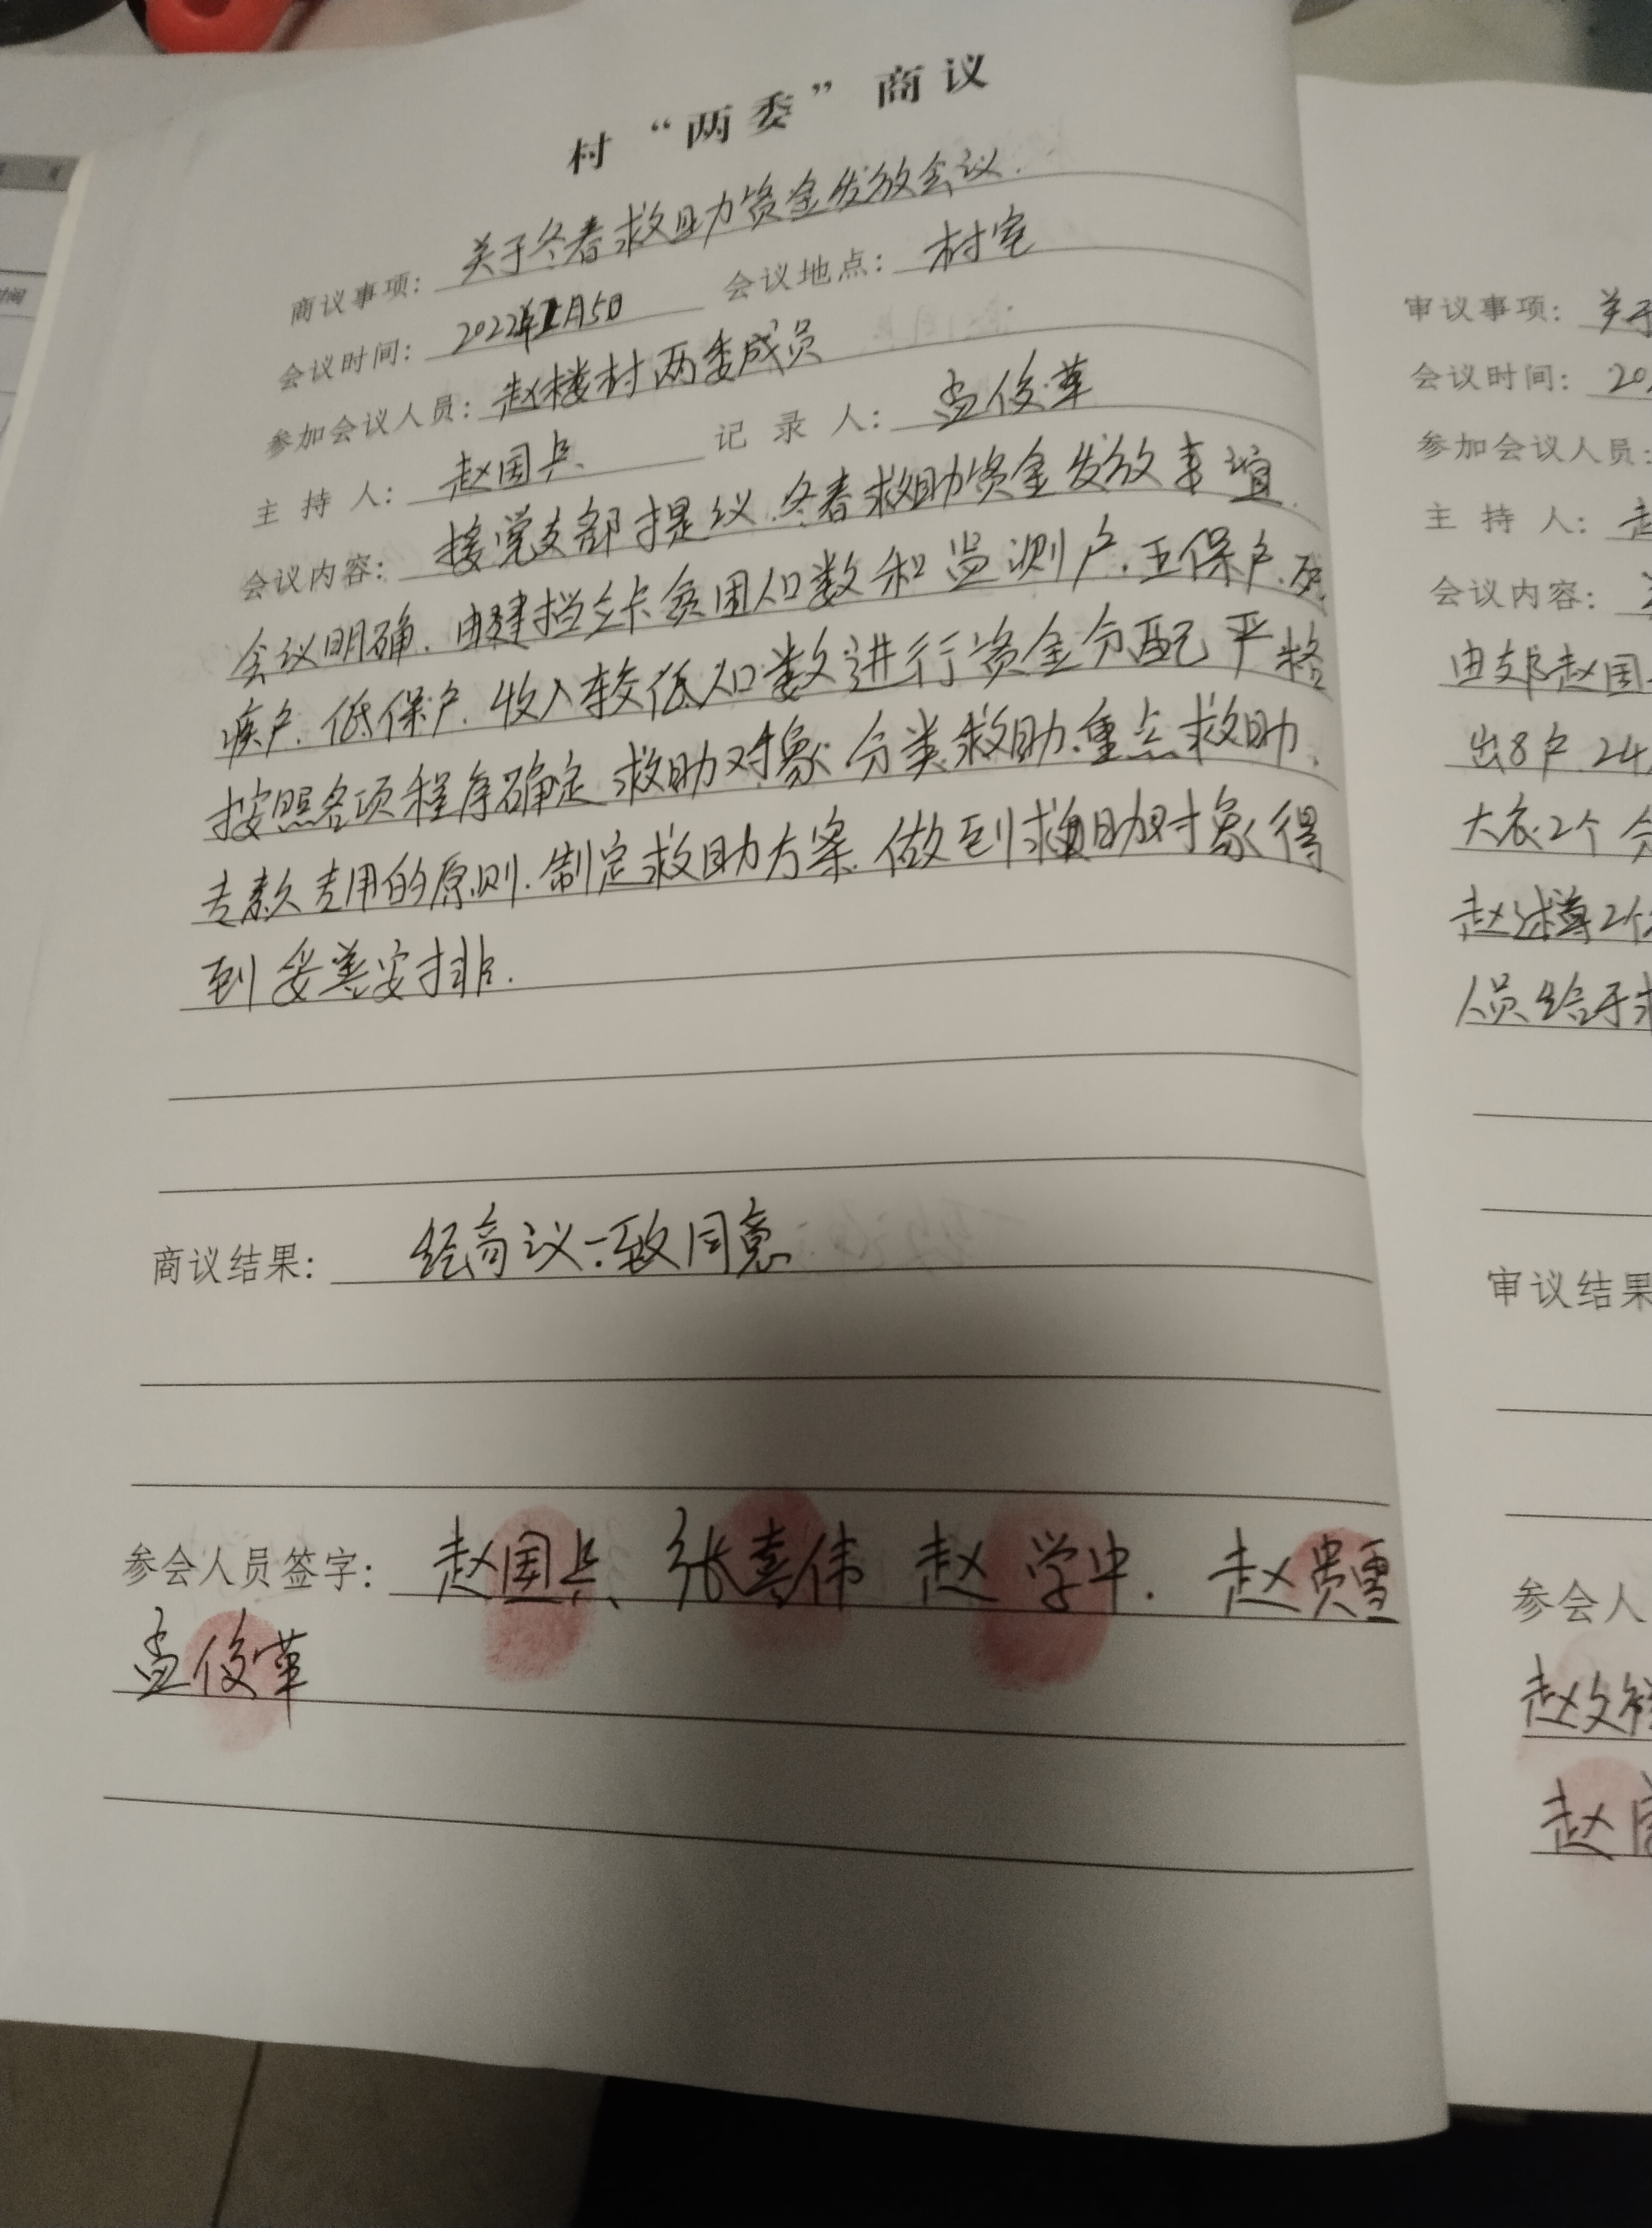 村“两委”商议
商议事项：关于冬春救助资金发放会议.
会议时间：2022年1月5日 会议地点：村室
参加会议人员：赵楼村两委成员
主持人：赵国兵 记录人：孟俊苹
会议内容：接党支部提议.冬春救助资金发放事谊.
会议明确.由建档立卡贫困人口数和监测户.五保户.残
疾户.低保户.收入较低人口数进行资金分配严格
按照各项程序确定救助对象分类救助.重点救助.
专款专用的原则.制定救助方案.做到救助对象得
到妥善安排.
商议结果：经商议一致同意
参会人员签字：赵国兵 张喜伟 赵学中. 赵贵雪
孟俊苹
审议事项：关于
会议时间：20
参加会议人员：
主持人：
会议内容：
由支部赵国
出8户24
大衣2个
2个
人员给予
审议结果
参会人
赵文祥
赵